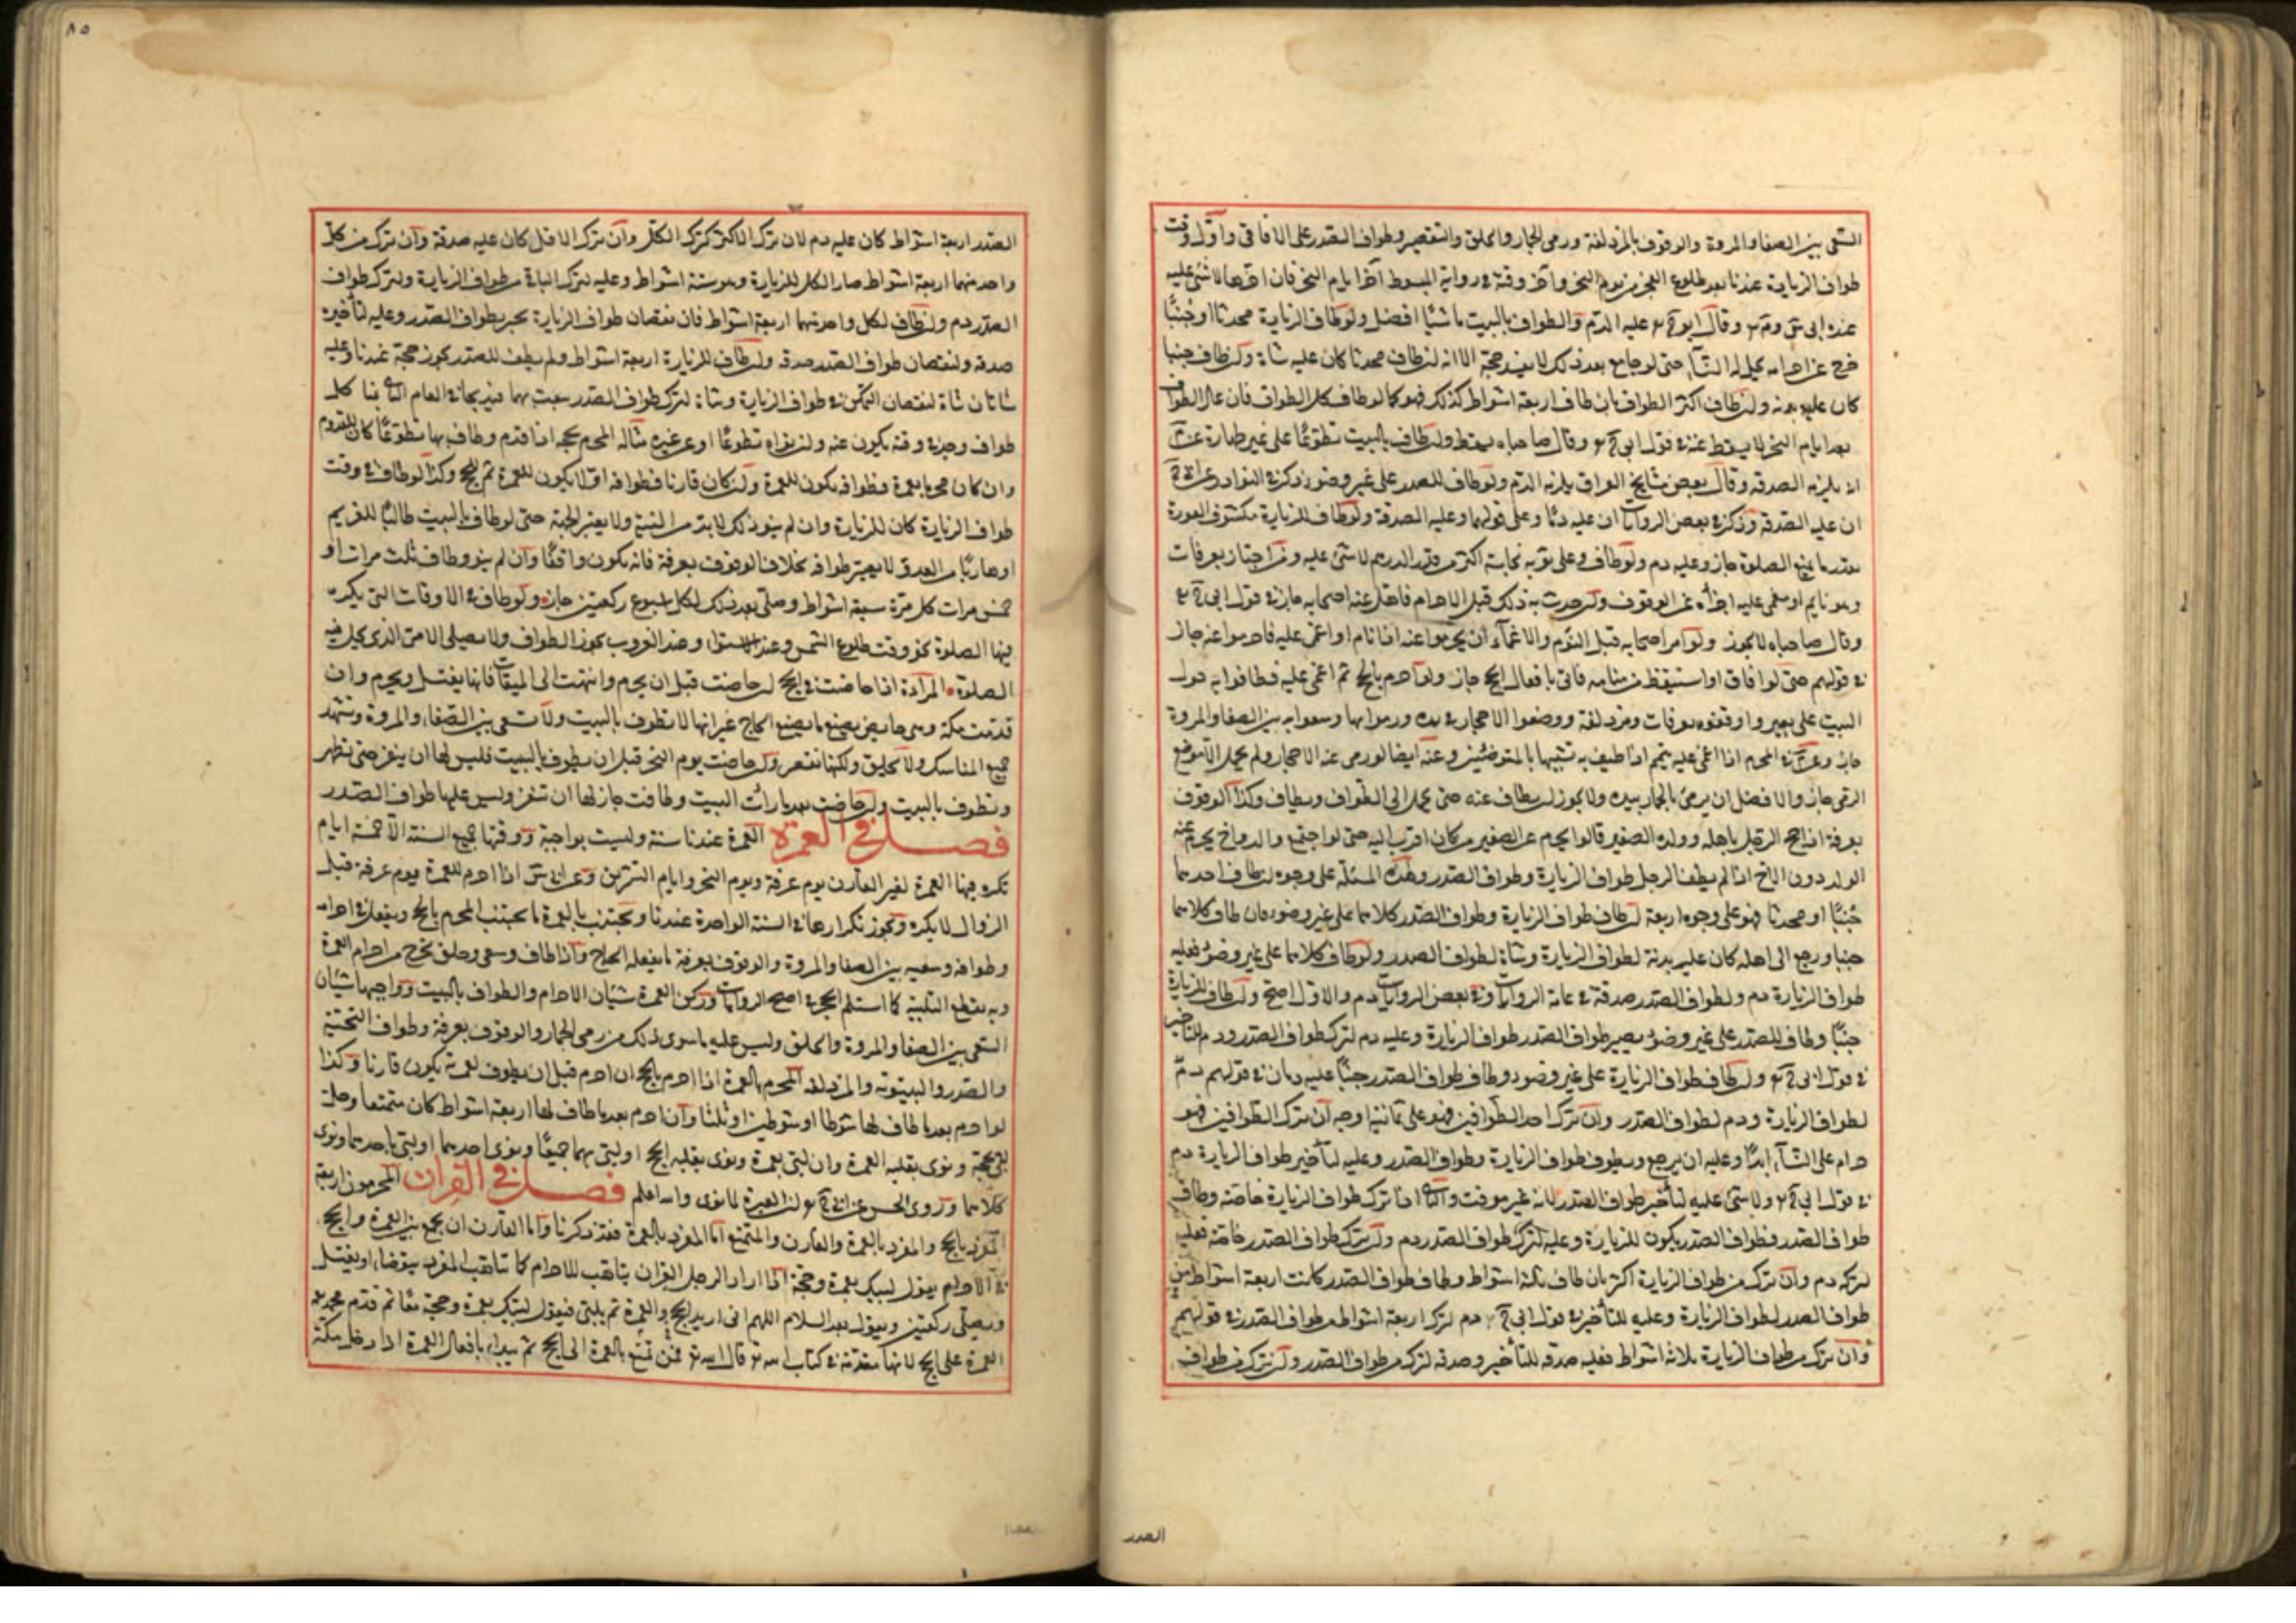 السعى بين الصفا والمروة والوقوف بالمزدلفة ورمى الجمار والحلق والتقصير وطواف الصدر على الافاقى واول وقت
طواف الزيارة عندنا بعد طلوع الفجر من يوم النحر واخر وقته فى رواية المبسوط آخر ايام النحر فان اخرها لا شئ عليه
وقال عليه الدم والطواف بالبيت ماشيًا افضل ولو طاف الزيارة محدثا او جنبًا
حتى لو جامع بعد ذلك لا يفسد حجه الا انه ان طاف محدثا كان عليه شاة وان طاف جنبا
كان عليه بدنة وان طاف اكثر الطواف بان طاف اربعة اشواط كذلك فهو كما لو طاف كل الطواف فان عاد الطواف
بعد ايام النحر لا يسقط عنه فى قول ابى ح وقال صاحباه يسقط ولو طاف بالبيت تطوعًا على غير طهارة
انه يلزمه الصدقة وقال بعض مشايخ العراق يلزمه الدم ولو طاف للصدر على غير وضوء ذكر فى النوادر
ان عليه الصدقة وذكر فى بعض الروايات ان عليه دمًا وعلى قولهما وعليه الصدقة ولو طاف للزيارة مكشوف العورة
بقدر ما يمنع الصلوة جاز وعليه دم ولو طاف وعلى ثوبه نجاسة اكثر من قدر الدرهم لا شئ عليه ومن اجتاز بعرفات
وهو نايم او مغمى عليه اجزأه عن الوقوف قبل الاحرام فاهل عنه اصحابه جاز فى قول ابى ح
وقال صاحباه لا يجوز ولو امر اصحابه قبل النوم والاغماء ان يحرموا عنه اذا نام او اغمى عليه فاحرموا عنه جاز
فى قولهم حتى لو افاق او استيقظ من منامه فاتى بافعال الحج جاز ولو احرم بالحج ثم اغمى عليه فطافوا به حول
البيت على بعير واوقفوه بعرفات ومزدلفة ووضعوا الاحجار فى يده ورموا بها وسعوا به بين الصفا والمروة
جاز المحرم اذا اغمى عليه اذا طيف به تشبيها بالمتوضئين وعنه ايضا لو رمى عنه الاحجار ولم يحمل الى موضع
الرمى جاز والافضل ان يرمى بالجمار بيده ولا يجوز ان يطاف عنه حتى يحمل الى الطواف ويطاف وكذا الوقوف
بعرفة اذا حج الرجل باهله وولده الصغير قالوا يحرم عن الصغير من كان اقرب اليه حتى لو اجتمع والد واخ يحرم عنه
الوالد دون الاخ اذا لم يطف الرجل طواف الزيارة وطواف الصدر وهذه المسئلة على وجوه ان طاف احدهما
جنبًا او محدثا فهو على وجوه اربعة ان طاف طواف الزيارة وطواف الصدر كلاهما على غير وضوء فان طاف كلاهما
جنبا ورجع الى اهله كان عليه بدنة لطواف الزيارة وشاة لطواف الصدر ولو طاف كلاهما على غير وضوء فعليه
طواف الزيارة دم ولطواف الصدر صدقة فى عامة الروايات وفى بعض الروايات دم والاول اصح وان طاف للزيارة
جنبًا وطاف للصدر على غير وضوء يصير طواف الصدر طواف الزيارة وعليه دم لترك طواف الصدر ودم للتاخير
فى قول ابى ح وان طاف طواف الزيارة على غير وضوء وطاف طواف الصدر جنبًا عليه دمان فى قولهم دم
لطواف الزيارة ودم لطواف الصدر وان ترك احد الطوافين فهو على ثمانية اوجه ان ترك الطوافين فهو
حرام على النساء ابدًا وعليه ان يرجع ويطوف طواف الزيارة وطواف الصدر وعليه لتأخير طواف الزيارة دم
فى قول ابى ح ولا شئ عليه لتأخير طواف الصدر لانه غير موقت والثانى اذا ترك طواف الزيارة خاصة وطاف
طواف الصدر فطواف الصدر يكون للزيارة وعليه لترك طواف الصدر دم وان ترك طواف الصدر خاصة فعليه
لتركه دم وان ترك من طواف الزيارة اكثر بان طاف ثلثة اشواط وطاف طواف الصدر كانت اربعة اشواط من
طواف الصدر لطواف الزيارة وعليه للتأخير فى قول ابى ح دم لترك اربعة اشواط من طواف الصدر فى قولهم
وان ترك من طواف الزيارة ثلاثة اشواط فعليه صدقة للتأخير وصدقة لتركه من طواف الصدر وان ترك من طواف
الصدر
٨٥
الصدر اربعة اشواط كان عليه دم لان ترك الاكثر كترك الكل وان ترك الاقل كان عليه صدقة وان ترك من كل
واحد منهما اربعة اشواط صار الكل للزيارة وهو ستة اشواط وعليه لترك الباقى من طواف الزيارة ولترك طواف
الصدر دم وان طاف لكل واحد منهما اربعة اشواط فان نقصان طواف الزيارة يجبر بطواف الصدر وعليه لتأخيره
صدقة ولنقصان طواف الصدر صدقة وان طاف للزيارة اربعة اشواط ولم يطف للصدر يجوز حجه عندنا وعليه
شاتان شاة لنقصان التمكن فى طواف الزيارة وشاة لترك طواف الصدر يبعث بهما كل
طواف وجد فى وقته يكون عنه وان نواه تطوعًا او عن غيره مثاله المحرم بحجه اذا قدم وطاف بها تطوعًا كان للقدوم
وان كان محرما بعمرة فطوافه يكون للعمرة وان كان قارنا فطوافه اولا يكون للعمرة ثم للحج وكذا لو طاف فى وقت
طواف الزيارة كان للزيارة وان لم ينو ذلك لابد من النية ولا يعتبر الجهة حتى لو طاف بالبيت طالبًا للغريم
او هاربًا من العدو لا يعتبر طوافه بخلاف الوقوف بعرفة فانه يكون واقفًا وان لم ينو وطاف ثلث مرات او
خمس مرات كل مرة سبعة اشواط وصلى بعد ذلك لكل اسبوع ركعتين جاز ولو طاف فى الاوقات التى يكره
فيها الصلوة نحو وقت طلوع الشمس وعند الاستواء وعند الغروب يجوز الطواف ولا يصلى الا فى الذى يحل فيه
الصلوة المرأة اذا حاضت فى الحج ان حاضت قبل ان يحرم وانتهت الى الميقات فانها يغتسل ويحرم وان
قدمت مكة وهى حايض يصنع ما يصنع الحاج غير انها لا تطوف بالبيت ولا تسعى بين الصفا والمروة وتشهد
جميع المناسك ولا تحلق ولكنها تقصر وان حاضت يوم النحر قبل ان يطوف بالبيت فليس لها ان ينفر حتى تطهر
وتطوف بالبيت وان حاضت بعد ما رأت البيت وطافت جاز لها ان تنفر وليس عليها طواف الصدر
فصل فى العمرة العمرة عندنا سنة وليست بواجبة ووقتها جميع السنة الا خمسة ايام
تكره فيها العمرة لغير القارن يوم عرفة ويوم النحر وايام التشريق اذا احرم للعمرة يوم عرفة قبل
الزوال لا يكره ويجوز تكرارها فى السنة الواحدة عندنا ويجتنب بالعمرة ما يجتنب المحرم بالحج ويفعل فى احرامه
وطوافه وسعيه بين الصفا والمروة والوقوف بعرفة ما يفعله الحاج واذا طاف وسعى وحلق يخرج من احرام العمرة
وبه يقطع التلبية كما استلم الحجر فى اصح الروايات وركن العمرة شيئان الاحرام والطواف بالبيت وواجبها شيئان
السعى بين الصفا والمروة والحلق وليس عليه ما سوى ذلك من رمى الجمار والوقوف بعرفة وطواف التحية
والصدر والبيتوتة والمزدلفة المحرم بالعمرة اذا احرم بالحج ان احرم قبل ان يطوف لعمرته يكون قارنا وكذا
لو احرم بعد ما طاف لها شوطا او شوطين او ثلثا وان احرم بعد ما طاف لها اربعة اشواط كان متمتعا
بحجة ونوى بقلبه العمرة وان لبى بعمرة ونوى بقلبه الحج او لبى بهما جميعًا ونوى احدهما او لبى باحدهما ونوى
كلاهما وروى الحسن عن ابى ح ان العبرة لما نوى والله اعلم فصل فى القران المحرمون اربعة
المفرد بالحج والمفرد بالعمرة والقارن والمتمتع اما المفرد بالعمرة فقد ذكرنا واما القارن ان يجمع بين العمرة والحج
فى الاحرام يقول لبيك بعمرة وحجة اذا اراد الرجل القران يتاهب للاحرام كما يتاهب المفرد يتوضا او يغتسل
ويصلى ركعتين ويقول بعد السلام اللهم انى اريد الحج والعمرة ثم يلبى فيقول لبيك بعمرة وحجة معًا ثم قدم
العمرة على الحج لانها مقدمة فى كتاب الله تع قال الله تع فمن تمتع بالعمرة الى الحج ثم يبداء بافعال العمرة اذا دخل مكة